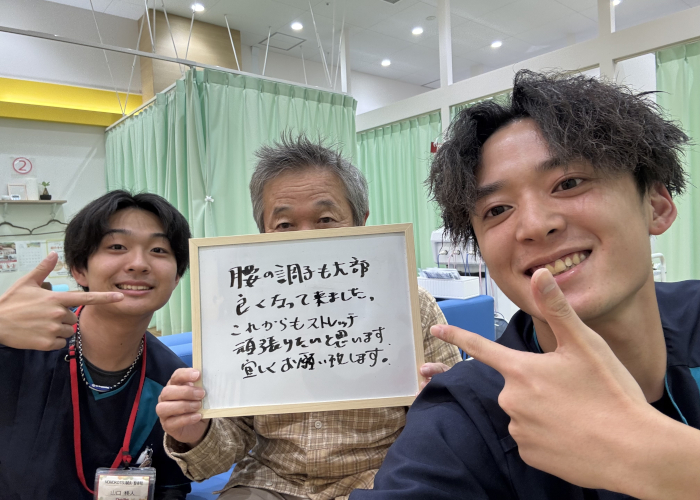 ②
腰の調子も大部
良くなって来ました。
これからもストレッチ
頑張りたいと思います。
宜しくお願い致します。